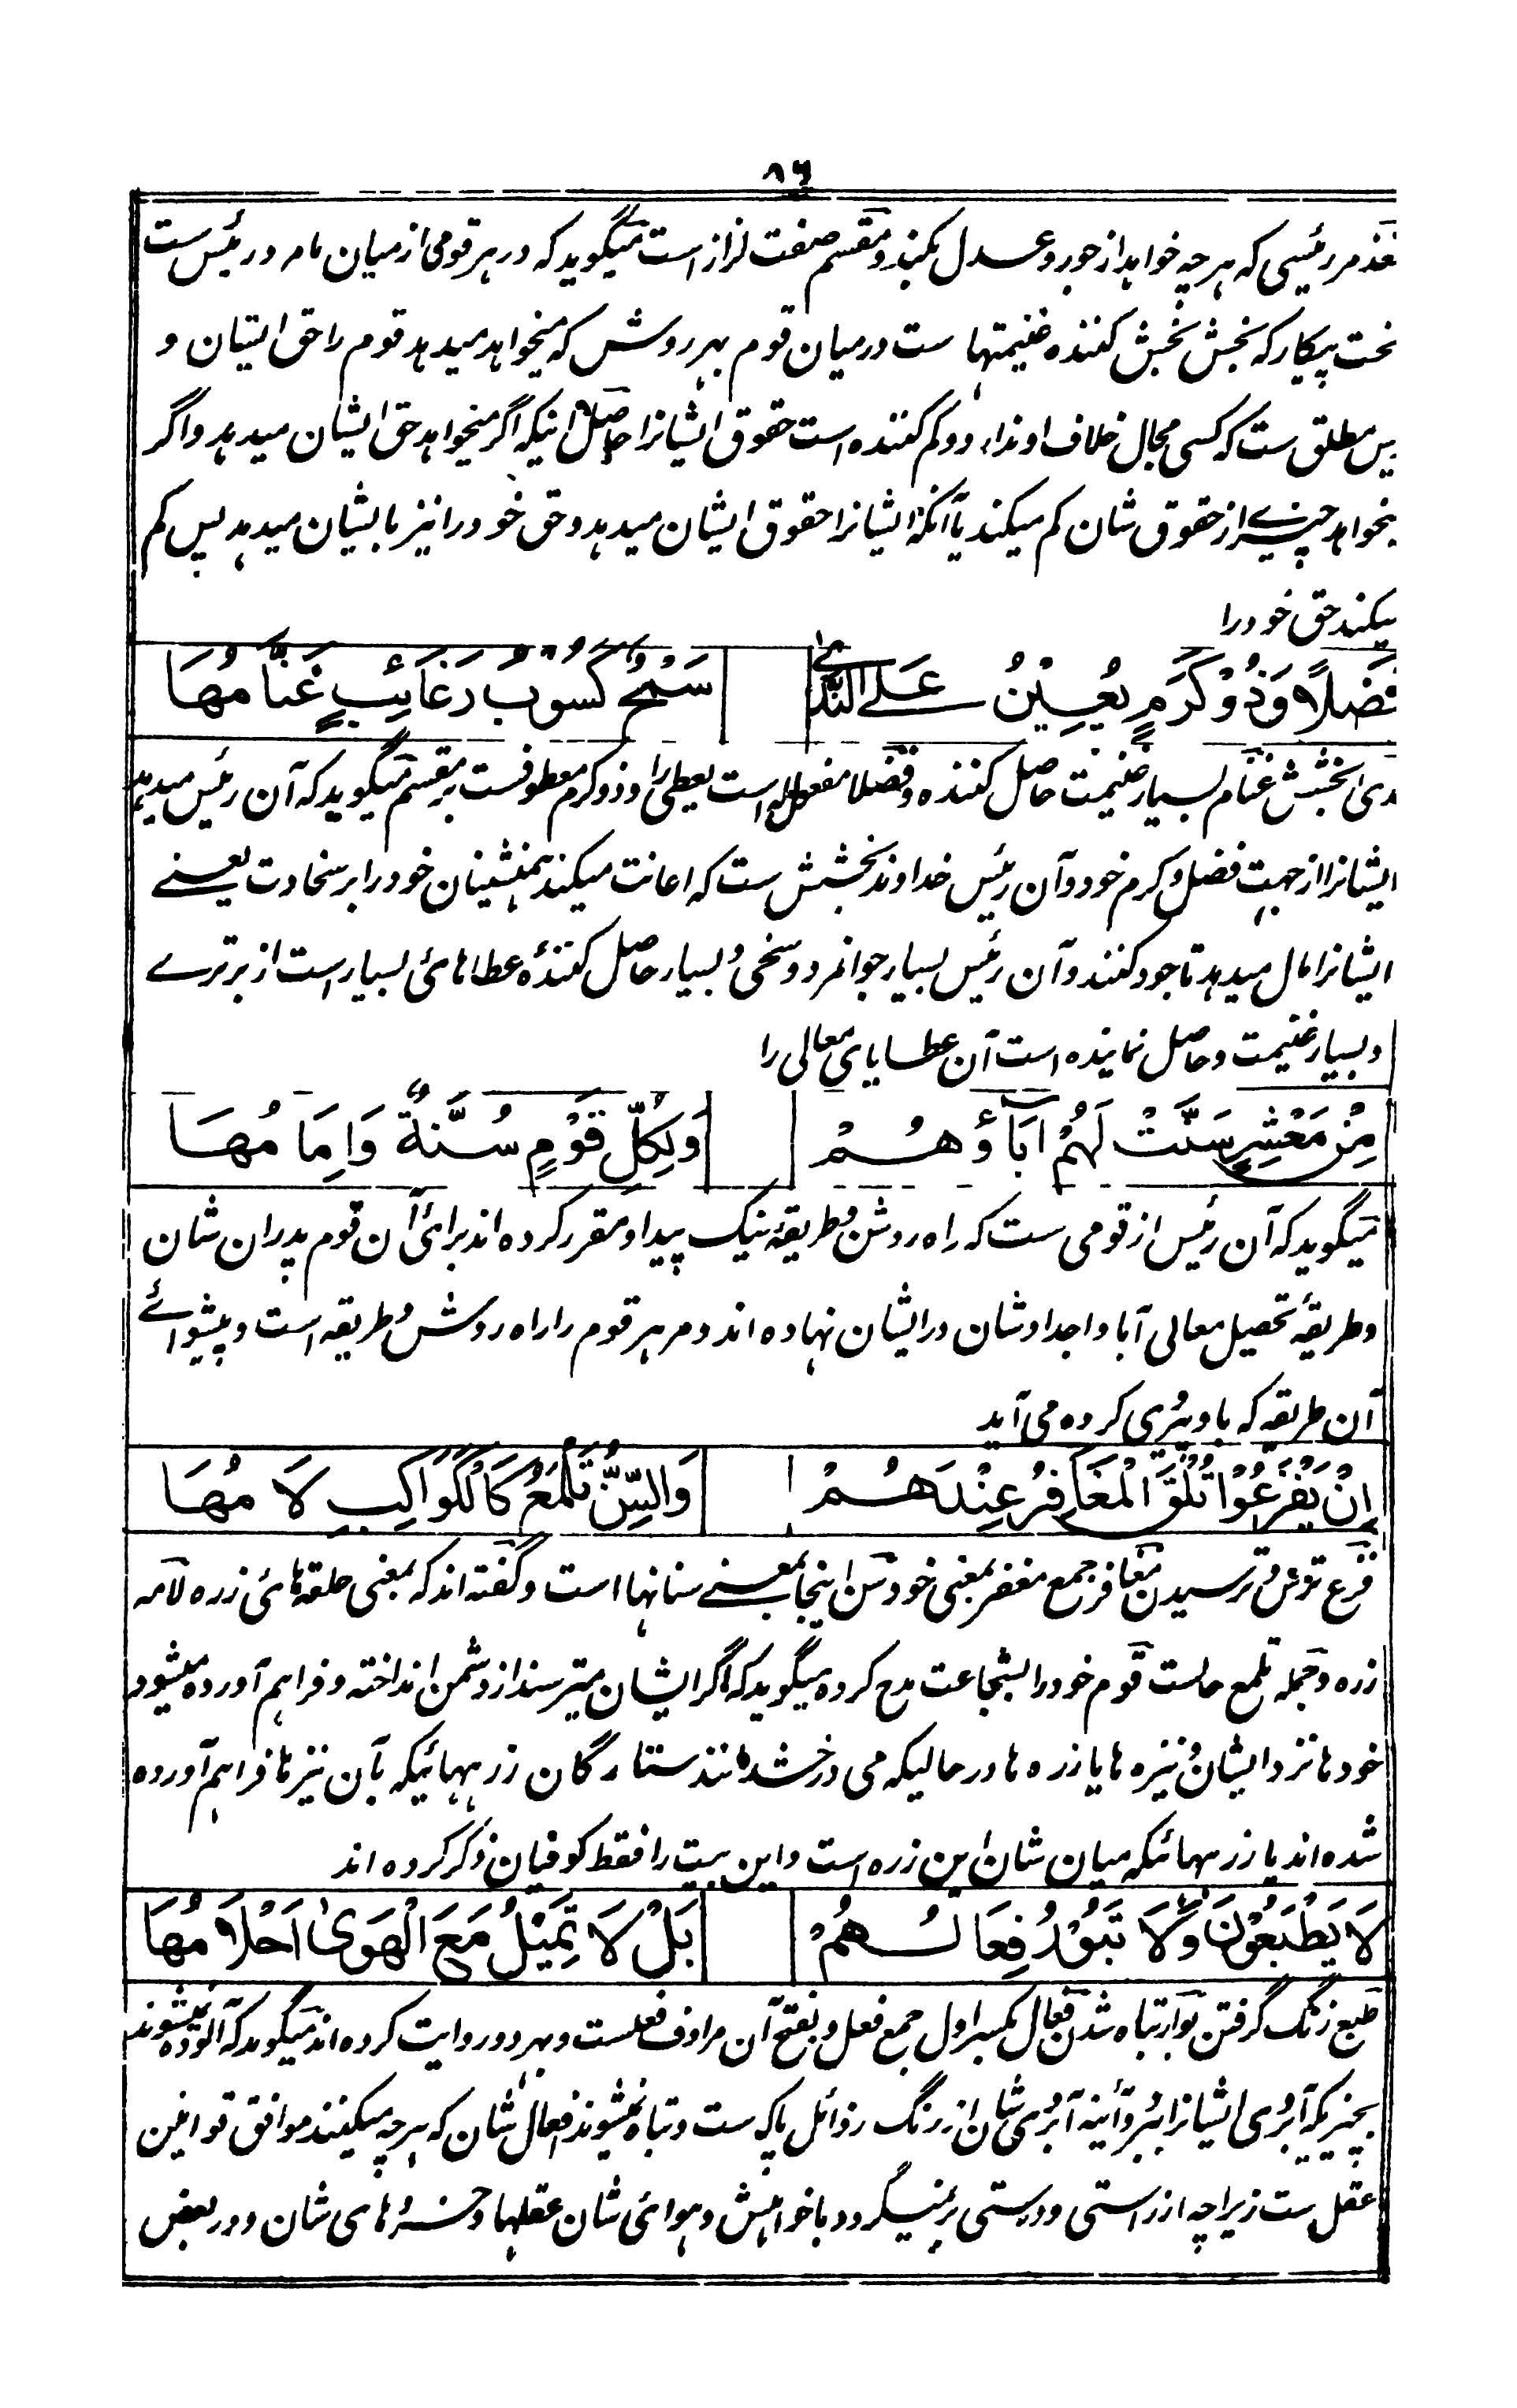 ۸۶
غذمر رئیسی که هرچه خواهد از جور و عدل بکند و مقسم صفت لزاز است میگوید که در هر قومی از میان ما مردِ رئیس ست
خت پیکار که بخش بخش کننده غنیمتها ست درمیان قوم بهر روش که میخواهد میدهد قوم را حق ایشان و
یس مطلق ست که کسی مجال خلاف او ندارد و کم کننده است حقوق ایشانرا حاصل اینکه اگر میخواهد حق ایشان میدهد و اگر
بخواهد چیزے از حقوق شان کم میکند یا آنکه ایشانرا حقوق ایشان میدهد و حق خود را نیز بایشان میدهد پس کم
یکند حق خود را
فَضْلًا وَذُوْ كَرَمٍ يُعِيْنُ عَلَى النَّدٰى
سَمْحٌ كَسُوْبُ رَغَائِبٍ غَنَّامُهَا
ندی بخشش غنّام بسیار غنیمت حاصل کننده و فضلا مفعول له است یعطی را و ذو کرم معطوفست بر مقسم میگوید که آن رئیس میدهد
ایشانرا از جهت فضل و کرم خود و آن رئیس خداوند بخشش ست که اعانت میکند همنشینان خود را بر سخاوت یعنے
ایشانرا مال میدهد تا جود کنند و آن رئیس بسیار جوانمرد و سخی و بسیار حاصل کنندهٔ عطاهائ بسیار است از برترے
و بسیار غنیمت و حاصل نماینده است آن عطایای معالی را
مِنْ مَعْشَرٍ سَنَّتْ لَهُمْ اٰبَاؤُهُمْ
وَلِكُلِّ قَوْمٍ سُنَّةٌ وَاِمَامُهَا
میگوید که آن رئیس از قومی ست که راه روشن و طریقهٔ نیک پیدا و مقرر کرده اند برائ آن قوم پدران شان
و طریقهٔ تحصیل معالی آبا و اجداد شان در ایشان نهاده اند و مر هر قوم را راه روشن و طریقه است و پیشوائے
آن طریقه که باو پیروی کرده می آید
اِنْ يَفْزَعُوْا تُلْقَ الْمَغَافِرُ عِنْدَهُمْ
وَالسِّنُّ تَلْمَعُ كَالْكَوَاكِبِ لَامُهَا
فزع ترسیدن مغافر جمع مغفر بمعنی خود سن اینجا بمعنے سنانها است و گفته اند که بمعنی حلقه هائ زره لامه
زره و جمله تلمع حالست قوم خود را بشجاعت مدح کرده میگوید که اگر ایشان میترسند از دشمن انداخته و فراهم آورده میشود
خودها نزد ایشان و نیزه ها یا زره ها در حالیکه می درخشد مانند ستارگان زرههائیکه بآن نیزها فراهم آورده
شده اند یا زرههائیکه میان شان این زره است و این بیت را فقط کوفیان ذکر کرده اند
لَا يَطْبَعُوْنَ وَلَا تَبُوْرُ فِعَالُهُمْ
بَلْ لَا تَمِيْلُ مَعَ الْهَوٰى اَحْلَامُهَا
طبع زنگ گرفتن بوار تباه شدن فعال بکسر اول جمع فعل و بفتح آن مرادف فعلست و بهر دو روایت کرده اند میگوید که آلوده نمیشوند
بچیزیکه آبروی ایشانرا ببرد و آئینه آبروی شان از زنگ رذائل پاک ست و تباه نمیشوند افعال شان که هرچه میکنند موافق قوانین
عقل ست زیراچه از راستی و درستی برنمیگردد با خواهش و هوائ شان عقلها و خردهای شان و در بعض